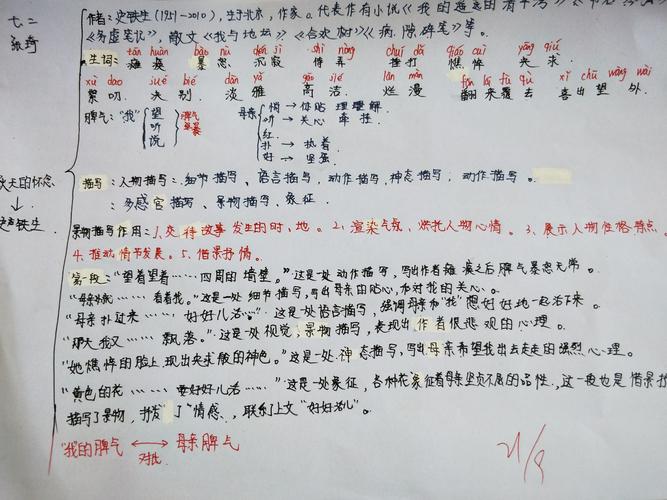 七.二
作者：史铁生（1951－2010），生于北京，作家。代表作有小说《我的遥远的清平湾》
《务虚笔记》，散文《我与地坛》《合欢树》《病隙碎笔》等。
tān huàn bào nù chén jì shì nòng chuí dǎ qiáo cuì yāng qiú
生词：瘫痪 暴怒 沉寂 侍弄 捶打 憔悴 央求
xù dao jué bié dàn yǎ gāo jié làn màn fān lái fù qù xǐ chū wàng wài
絮叨 诀别 淡雅 高洁 烂漫 翻来覆去 喜出望外
脾气："我" 望 听 说 脾气暴
母亲 悄 → 体贴 理解
听 → 关心 牵挂
红
扑 → 执着
好 → 坚强
秋天的怀念
↓
史铁生
描写：人物描写：细节描写、语言描写，动作描写，神态描写，动作描写。
：多感官描写、景物描写、象征。
景物描写作用：1、交待故事发生的时、地。2、渲染气氛，烘托人物心情。3、展示人物性格特点。
4、推动情节发展。5、借景抒情。
第一段："望着望着……四周的墙壁。"这是一处动作描写，写出作者瘫痪之后脾气暴怒无常。
……看着我。"这是一处细节描写，写出母亲的贴心，和对我的关心。
"母亲扑过来……好好儿活……"这是一处语言描写，强调母亲和"我"想好好地一起活下来。
"那天我又……飘落。"这是一处视觉，景物描写，表现出作者很悲观的心理。
"她憔悴的脸上现出央求般的神色。"这是一处神态描写，写出母亲希望我出去走走的强烈心理。
"黄色的花……要好好儿活……"这是一处象征，各种花象征着母亲坚贞不屈的品性，这一段也是借景抒
描写了景物，抒发了"情感，联系上文"好好儿活"。
"我的脾气 ←→ 母亲脾气
对比